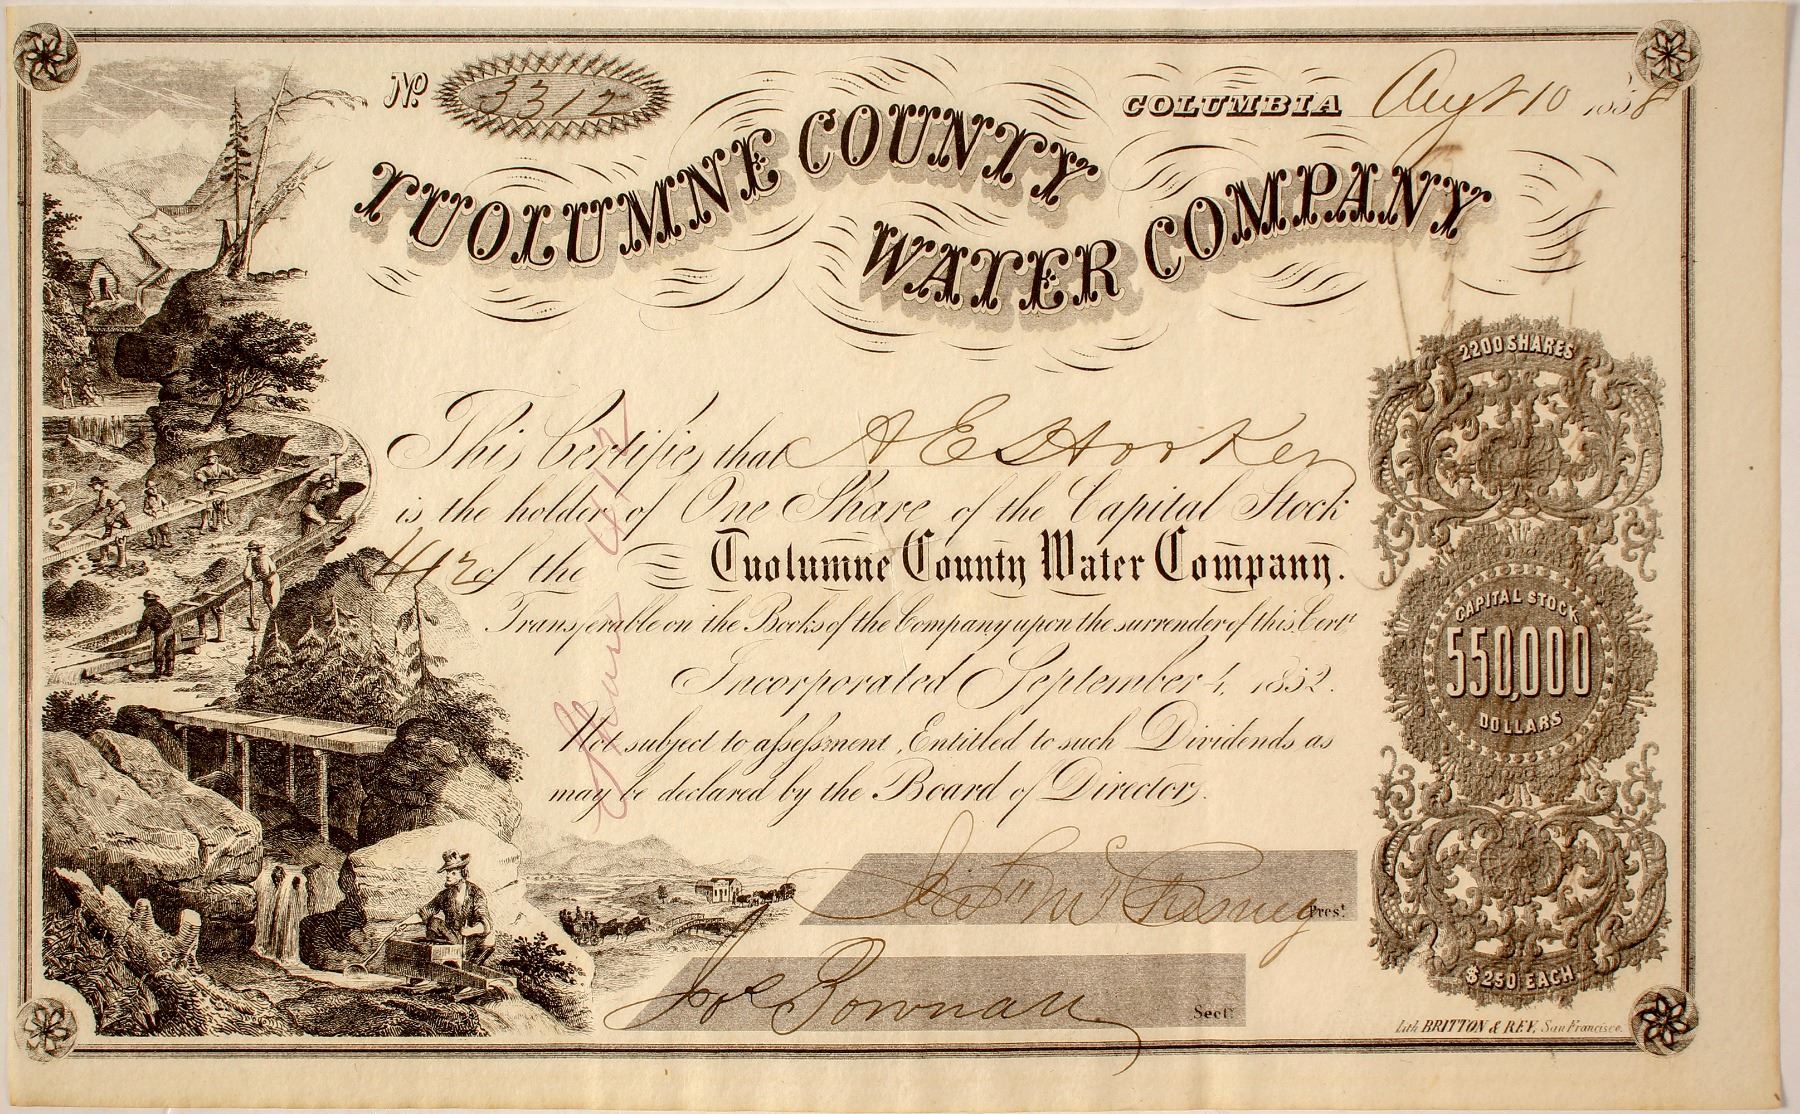 No. 3312
COLUMBIA Augt 10 1858
TUOLUMNE COUNTY
WATER COMPANY
2200 SHARES
This Certifies that A E Hooker
is the holder of One Share of the Capital Stock
412 of the Tuolumne County Water Company.
Transferable on the Books of the Company upon the surrender of this Certt
Incorporated September 4, 1852.
Not subject to assessment, Entitled to such Dividends as
may be declared by the Board of Directors.
Share 412
CAPITAL STOCK
550,000
DOLLARS
Prest
Jos Bownan
Secty
$250 EACH
Lith. BRITTON & REY, San Francisco.